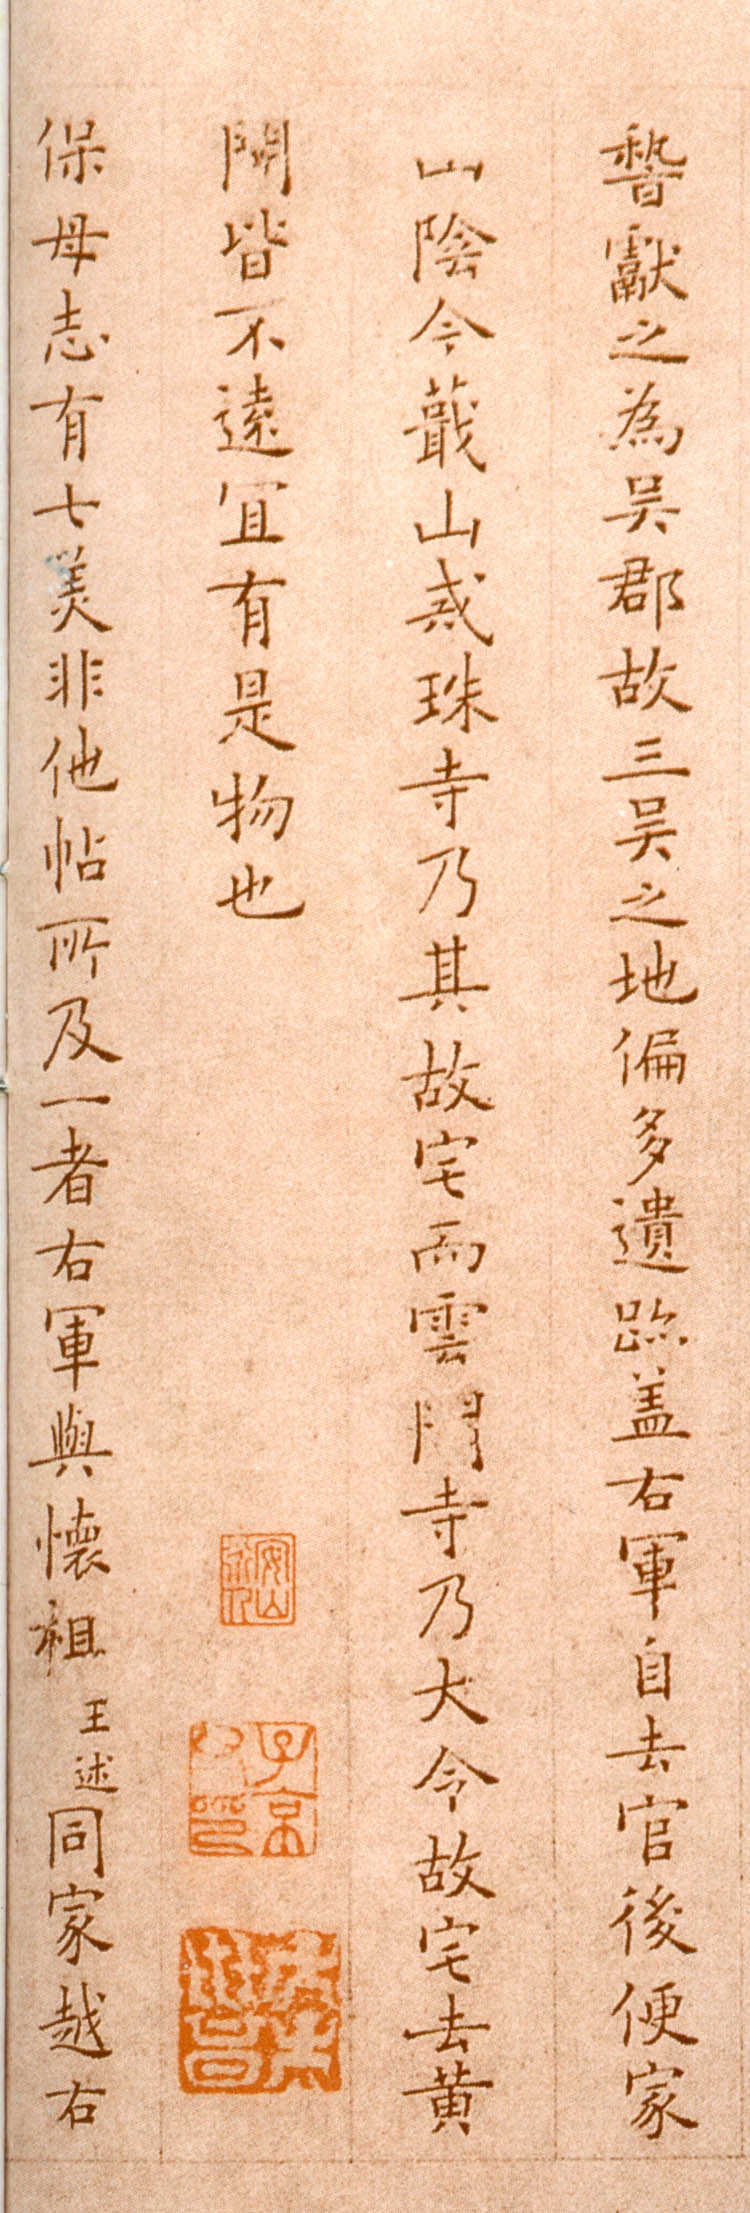 誓獻之為吳郡故三吳之地偏多遺跡盖右軍自去官後便家
山陰今蕺山戒珠寺乃其故宅而雲門寺乃大令故宅去黃
閍皆不遠宜有是物也
保母志有七美非他帖所及一者右軍與懷祖王述同家越右
子京父印